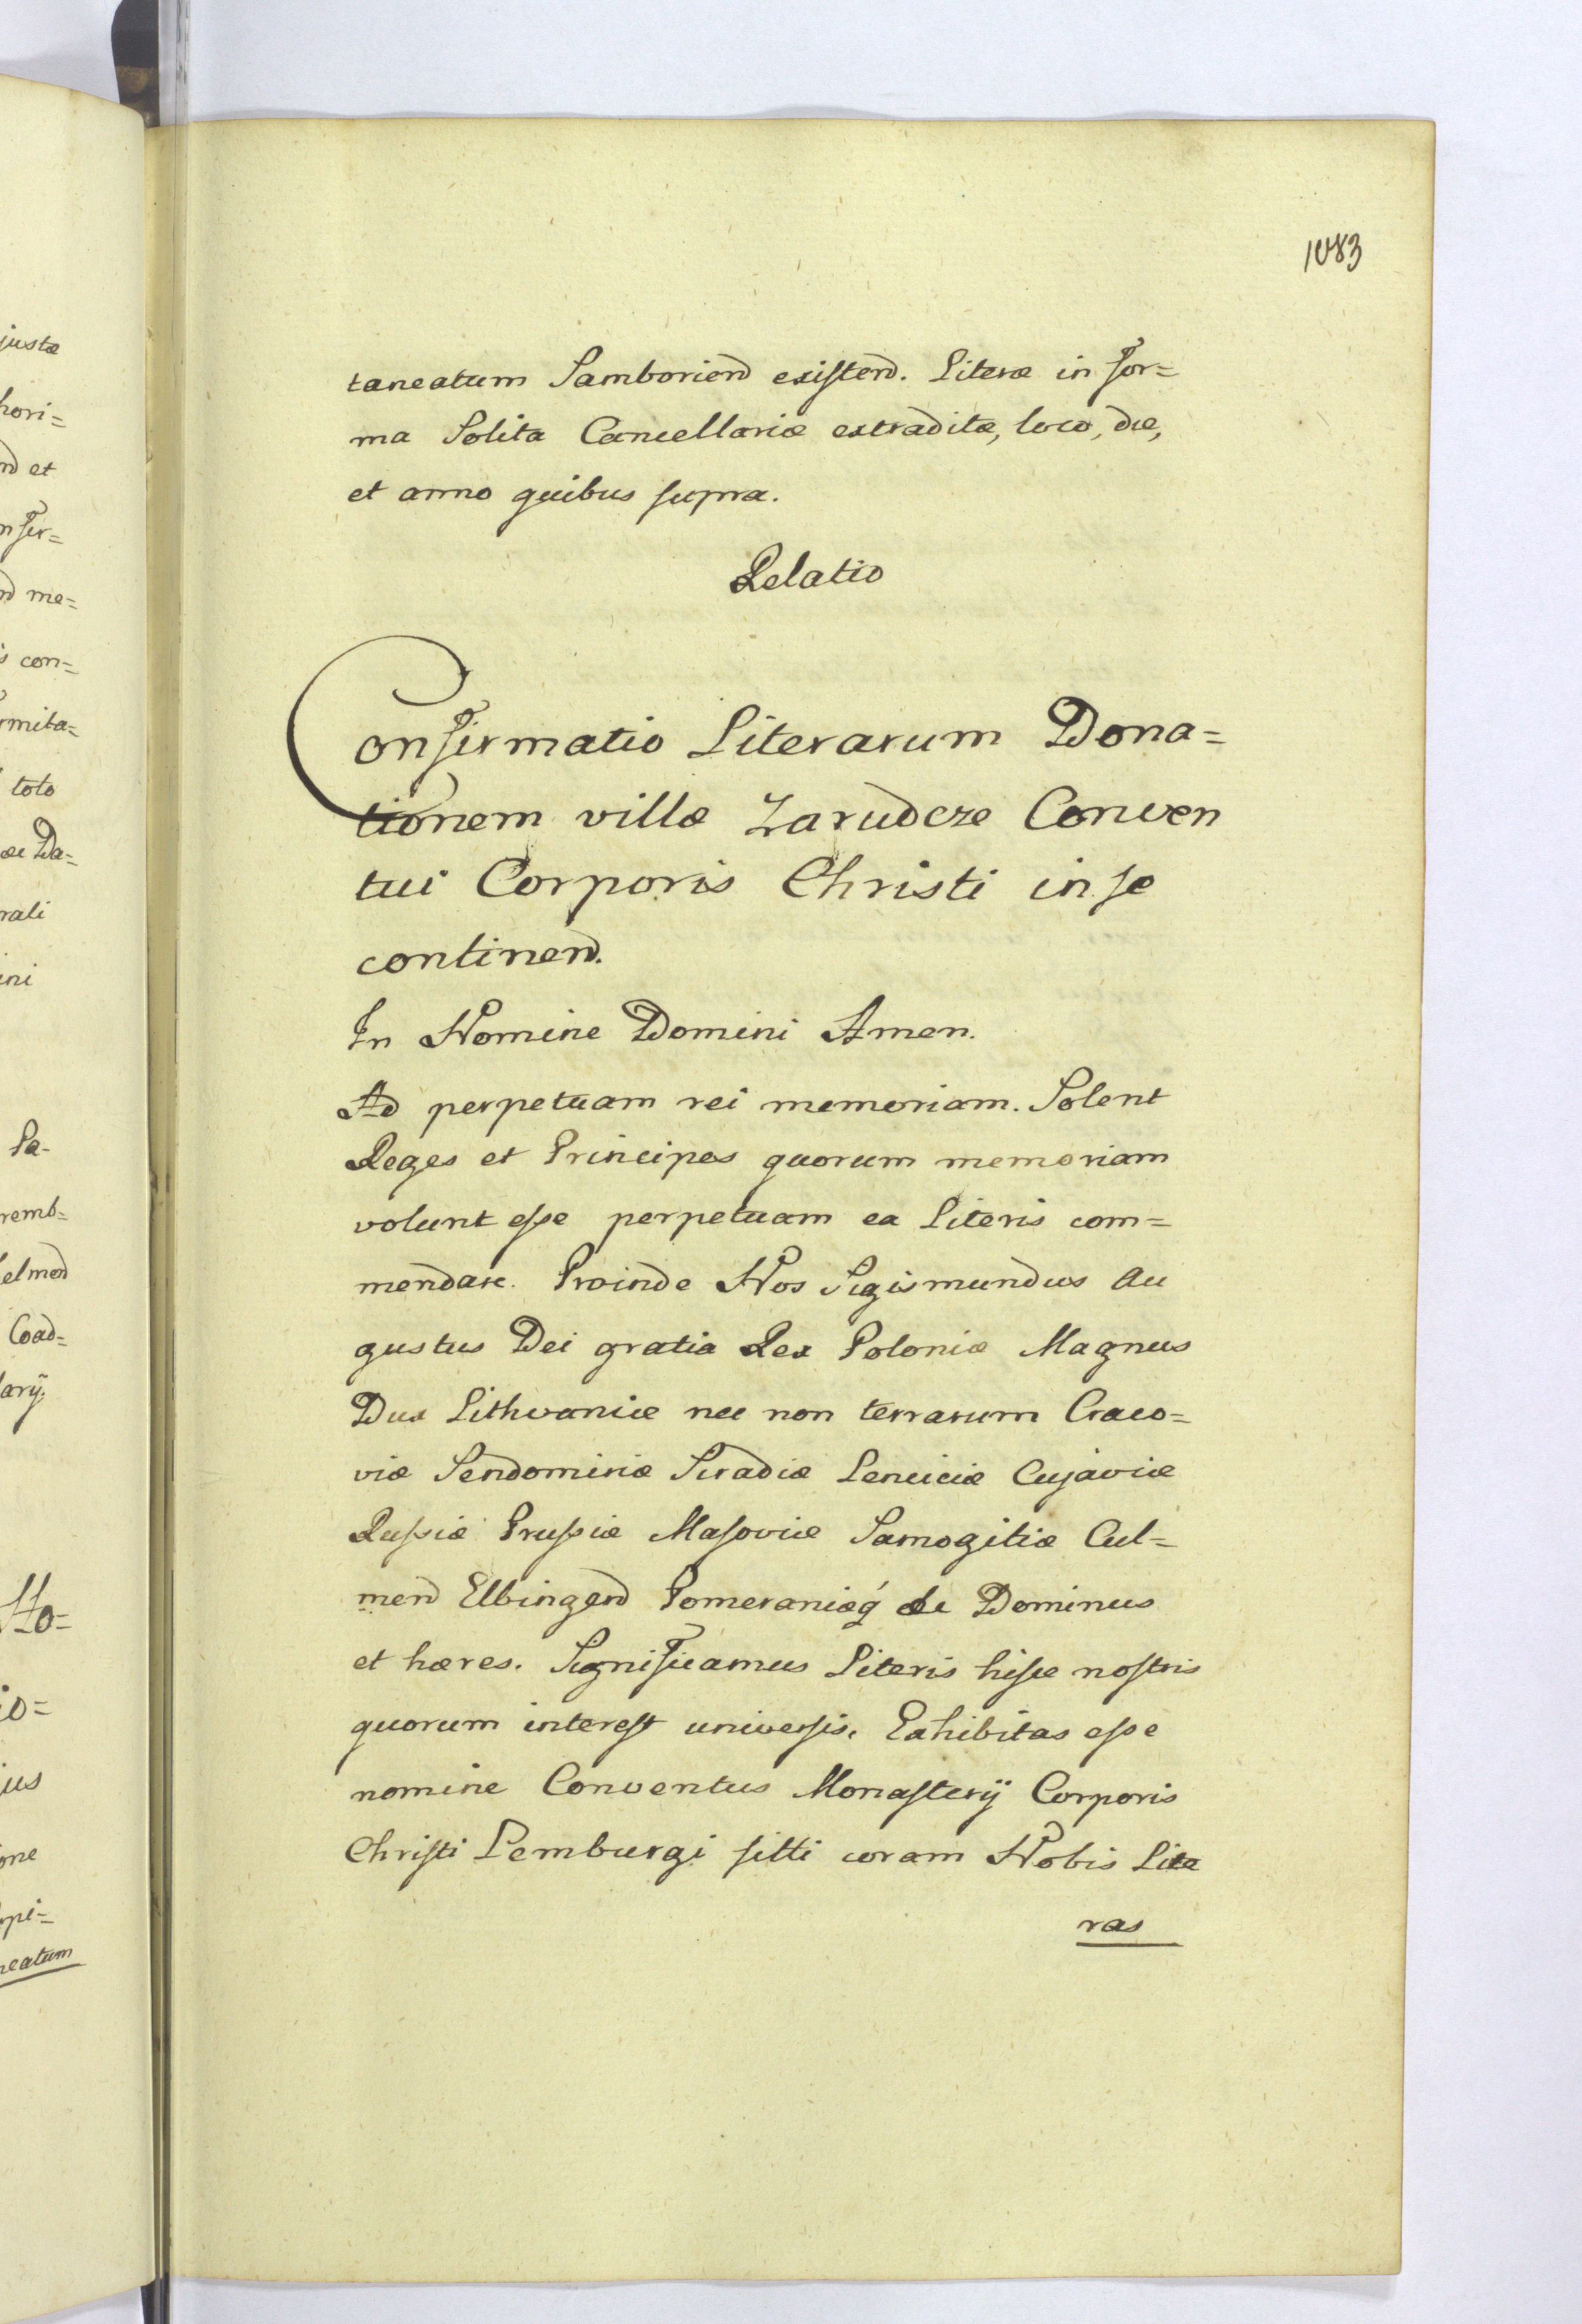 1083
taneatum Samboriend existend. Literæ in for=
ma Solita Cancellariæ extraditæ, loco, die,
et anno quibus supra.
Relatio
Confirmatio Literarum Dona=
tionem villæ Zarudcze Conven
tui Corporis Christi in se
continend.
In Nomine Domini Amen.
Ad perpetuam rei memoriam. Solent
Reges et Principes quorum memoriam
volunt esse perpetuam ea Literis com=
mendare. Proinde Nos Sigismundus Au
gustus Dei gratia Rex Poloniæ Magnus
Dux Lithvaniæ nec non terrarum Craco=
viæ Sendomiriæ Siradiæ Lenciciæ Cujaviæ
Russiæ Prussiæ Masoviæ Samogitiæ Cul=
mend Elbingend Pomeraniæq́ &c Dominus
et hæres. Significamus Literis hisce nostris
quorum interest universis. Exhibitas esse
nomine Conventus Monasterij Corporis
Christi Lemburgi sitti coram Nobis Lite
ras
justæ
hori=
nd et
nfir=
nd me=
s con=
rmita=
toto
Da=
rali
ini
Pa-
remb=
elmend
Coad=
larij.
Ho=
io=
ius
one
opi=
neatum